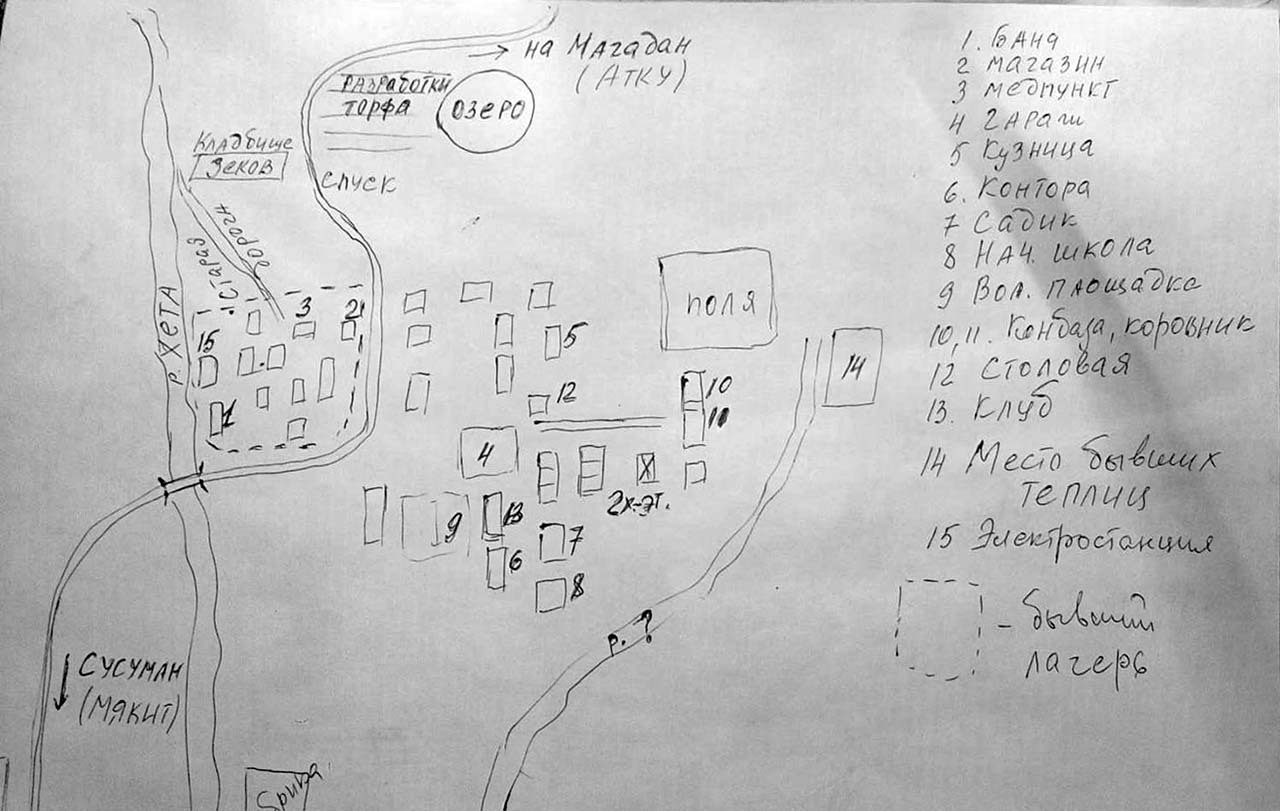 на Магадан
(Атку)
РАЗРАБОТКИ
ТОРФА
ОЗЕРО
Кладбище
Зеков
спуск
Старая
дорога
р. ХЕТА
15
3
2
1
5
12
4
9
13
6
7
8
2х-эт.
ПОЛЯ
10
11
14
р. ?
СУСУМАН
(МЯКИТ)
1. Баня
2 магазин
3 медпункт
4 гараж
5 Кузница
6. Контора
7 Садик
8 НАЧ. школа
9 Вол. площадка
10, 11. Конбаза, коровник
12 Столовая
13. Клуб
14 Место бывших
теплиц
15 Электростанция
- бывший
лагерь